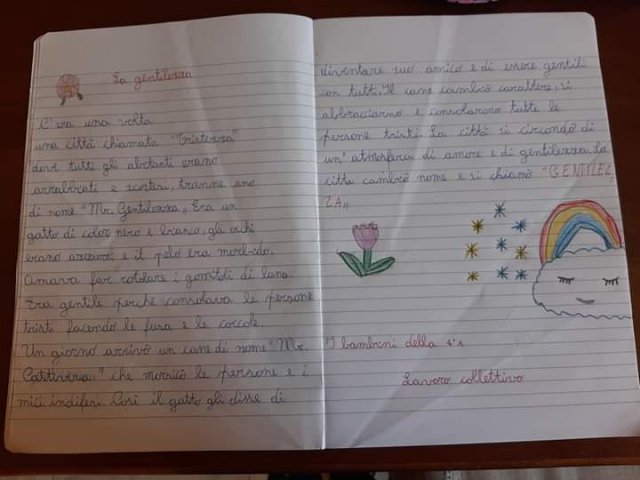 La gentilezza
C'era una volta
una città chiamata "Tristezza"
dove tutti gli abitanti erano
arrabbiati e scortesi, tranne uno
di nome "Mr. Gentilezza„ Era un
gatto di color nero e bianco, gli occhi
erano azzurri e il pelo era morbido.
Amava far rotolare i gomitoli di lana.
Era gentile perché consolava le persone
tristi facendo le fusa e le coccole.
Un giorno arrivò un cane di nome "Mr.
Cattiveria„ che morsicò le persone e i
mici indifesi. Così il gatto gli disse di
diventare suo amico e di essere gentili
con tutti. Il cane cambiò carattere, si
abbracciarono e consolarono tutte le
persone tristi. La città si circondò di
un'atmosfera di amore e di gentilezza. La
città cambiò nome e si chiamò "GENTILEZ
ZA„
I bambini della 4ª A
Lavoro collettivo